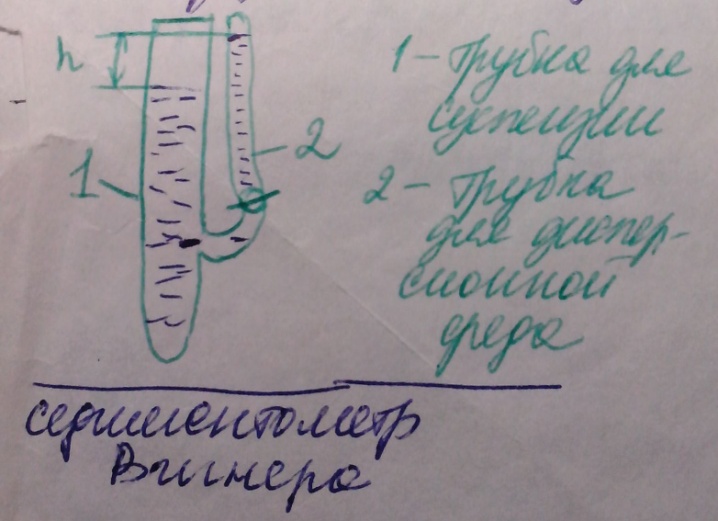 h
1
2
1 – трубка для
суспензии
2 – трубка
для диспер-
сионной
среда
седиментометр
Вигнера